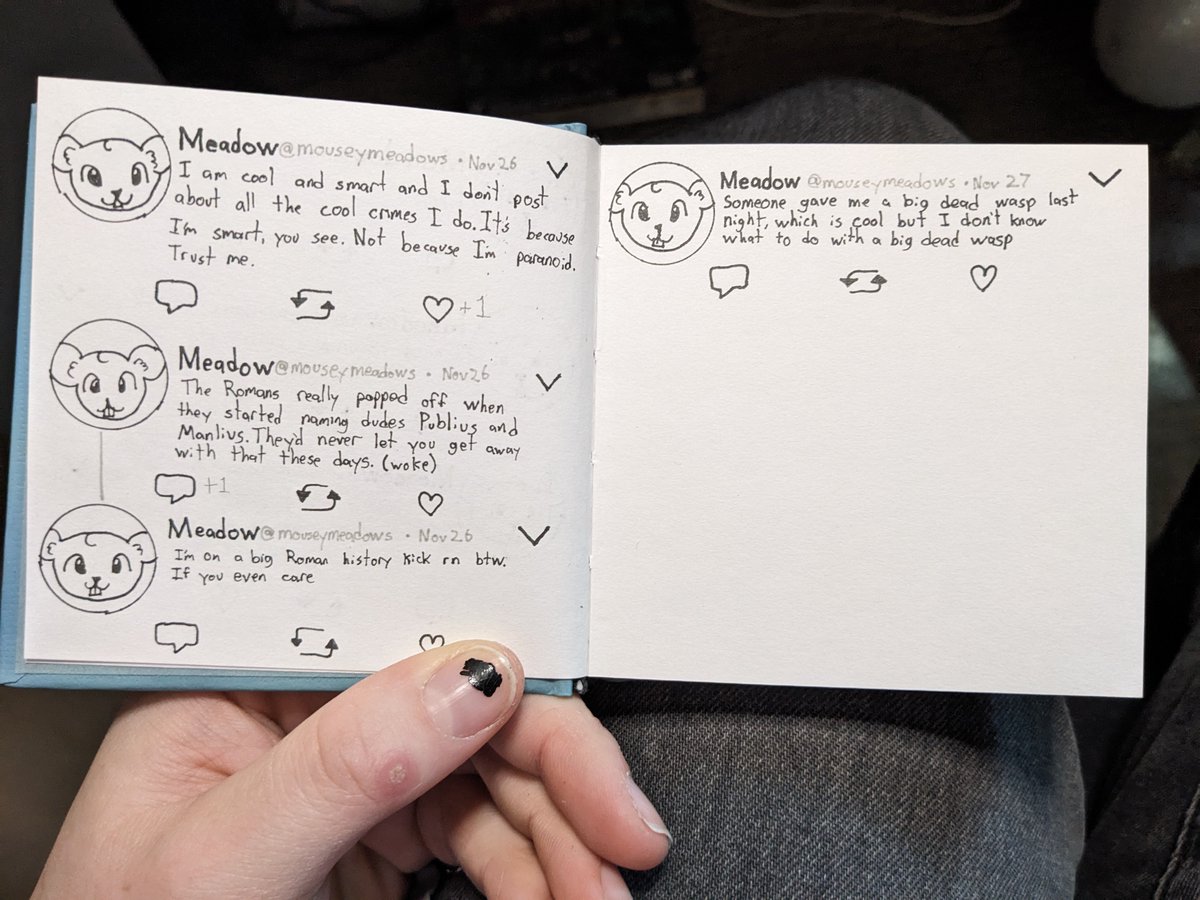 Meadow@mouseymeadows · Nov 26
I am cool and smart and I don't post
about all the cool crimes I do. It's because
I'm smart, you see. Not because I'm paranoid.
Trust me.
+1
Meadow@mouseymeadows · Nov 26
The Romans really popped off when
they started naming dudes Publius and
Manlius. They'd never let you get away
with that these days. (woke)
+1
Meadow@mouseymeadows · Nov 26
I'm on a big Roman history kick rn btw.
If you even care
Meadow @mouseymeadows · Nov 27
Someone gave me a big dead wasp last
night, which is cool but I don't know
what to do with a big dead wasp